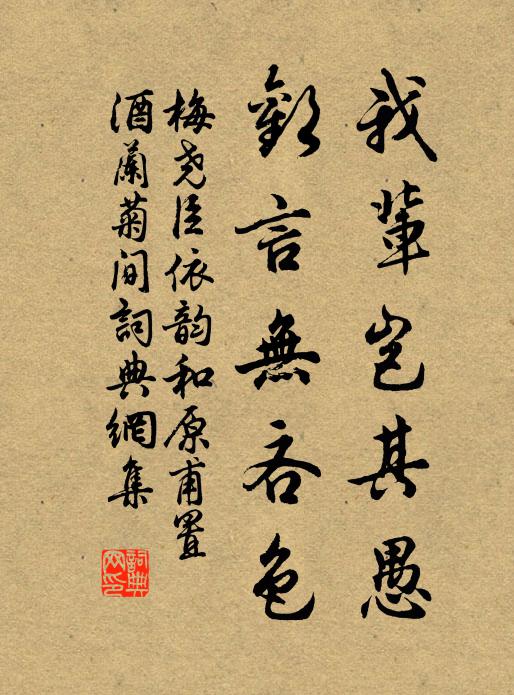 我輩豈其愚
歡言無吝色
梅尧臣依韵和原甫置
酒蘭菊间詞典網集
詞典
网印